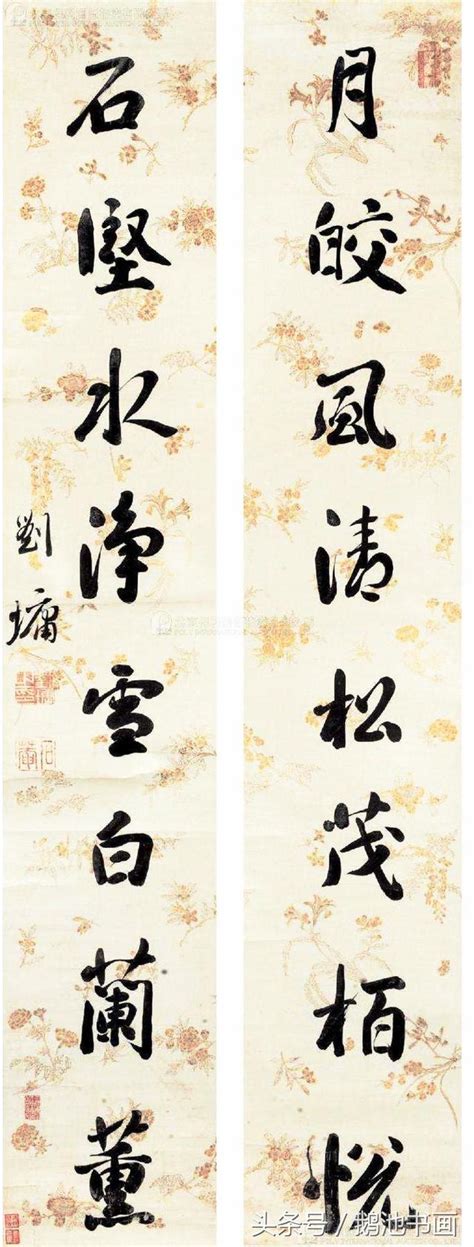 月皎風清松茂栢悦
石堅水淨雪白蘭薰
劉墉
头条号/鹅池书画